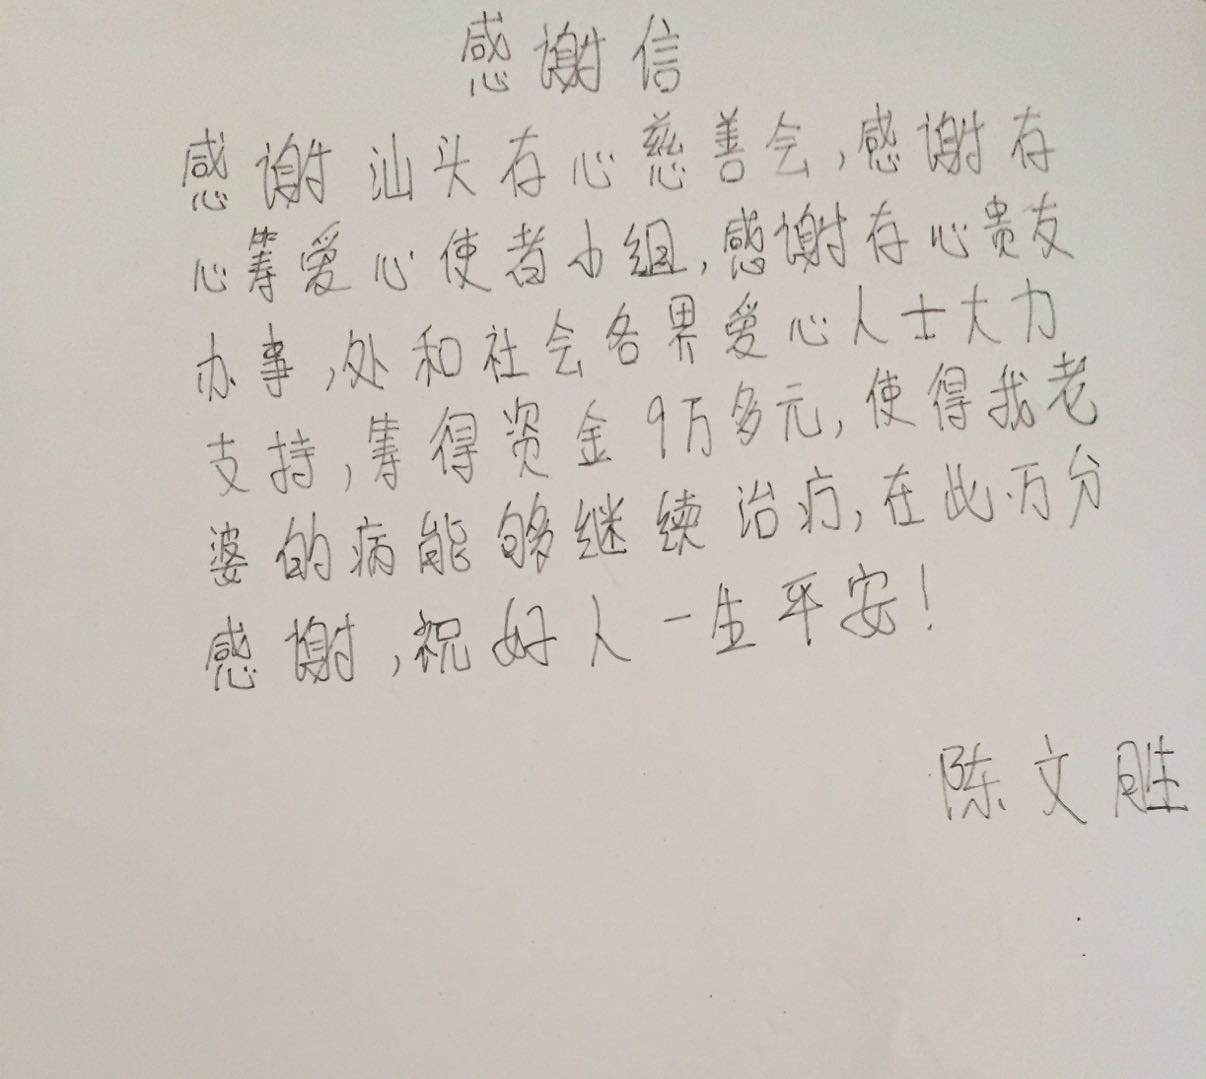 感谢信
感谢汕头存心慈善会,感谢存
心筹爱心使者小组,感谢存心贵友
办事,处和社会各界爱心人士大力
支持,筹得资金9万多元,使得我老
婆的病能够继续治疗,在此万分
感谢,祝好人一生平安!
陈文胜